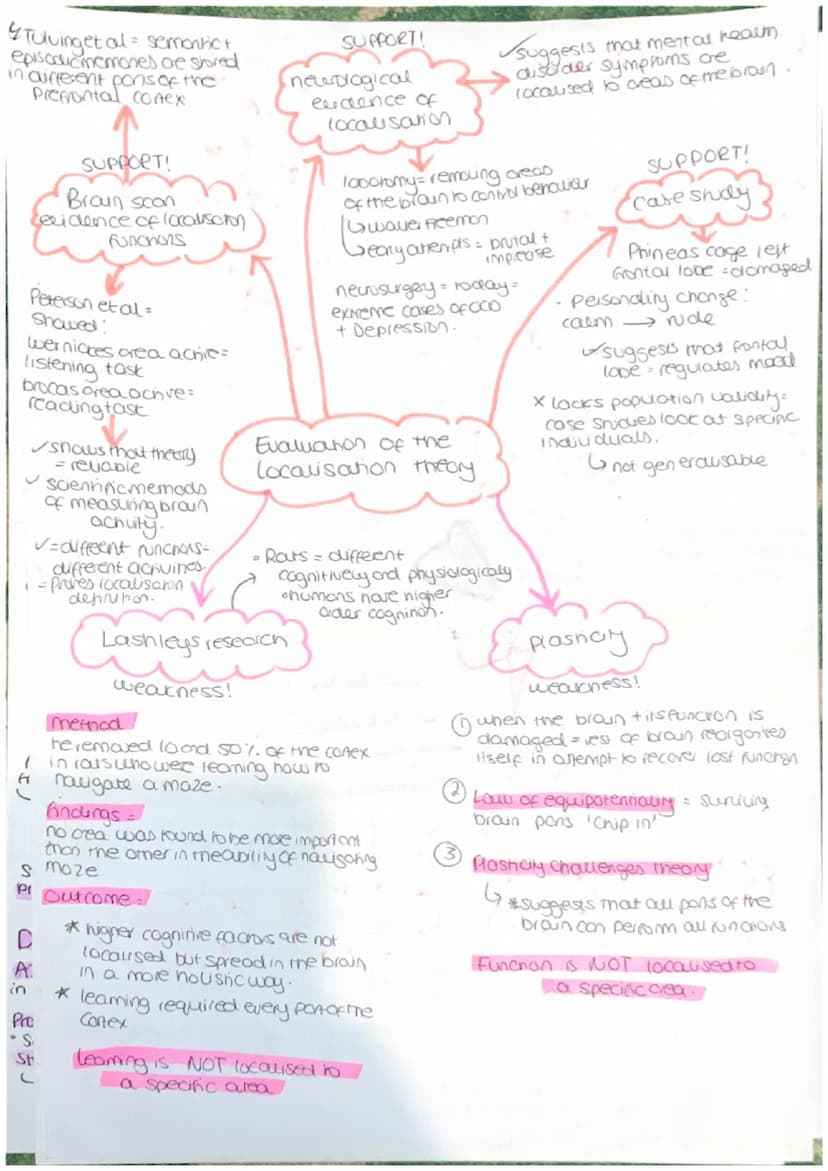 ↳Tulving et al = semantic +
episodic memories are stored
in different parts of the
Prefrontal cortex
SUPPORT!
Brain scan
evidence of localisation
functions
Peterson et al =
showed:
wernickes area active =
listening task
brocas area active =
reading task
✓shows that theory
= reliable
✓ scientific methods
of measuring brain
activity.
✓= different functions =
different activities.
= proves localisation
definition.
SUPPORT!
neurological
evidence of
localisation
✓suggests that mental health
disorder symptoms are
localised to areas of the brain.
lobotomy = removing areas
of the brain to control behaviour
↳walter freeman
↳early attempts = brutal +
imprecise
neurosurgery = today =
extreme cases of OCD
+ Depression.
SUPPORT!
case study
Phineas cage left
frontal lobe = damaged
- Personality change:
calm → rude
✓suggests that frontal
lobe = regulates mood
x lacks population validity =
case studies look at specific
individuals.
↳ not generalisable
Evaluation of the
localisation theory
• Rats = different
cognitively and physiologically
• humans have higher
order cognition.
Lashleys research
weakness!
method
he removed 10 and 50% of the cortex
in rats who were learning how to
navigate a maze.
findings =
no area was found to be more important
than the other in the ability of navigating
maze
outcome =
* higher cognitive factors are not
localised but spread in the brain
in a more holistic way.
* learning required every part of the
cortex
Learning is NOT localised to
a specific area
Plasticity
weakness!
① when the brain + its function is
damaged = rest of brain reorganises
itself in attempt to recover lost function
② Law of equipotentiality = surviving
brain parts 'chip in'
③ Plasticity challenges theory
↳ *suggests that all parts of the
brain can perform all functions
Function is NOT localised to
a specific area.
S
Pr
D
A
in
Pro
• S
St